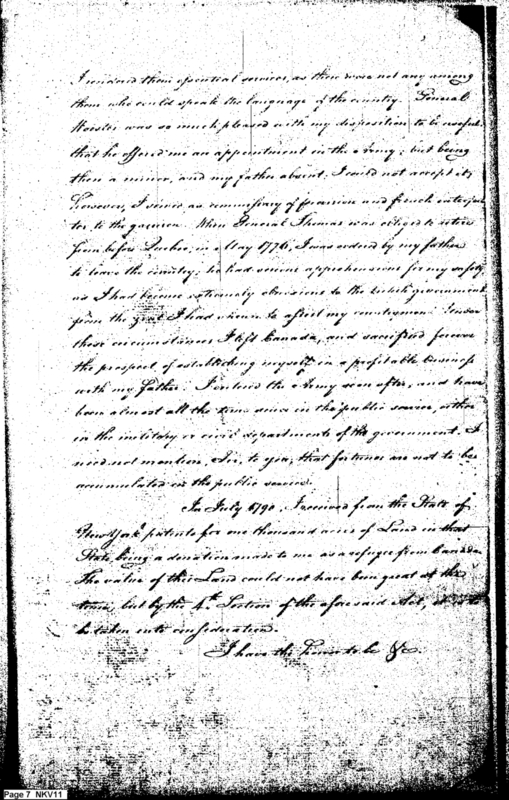 I rendered them essential services, as there were not any among
them who could speak the language of the country. General
Wooster was so much pleased with my disposition to be useful,
that he offered me an appointment in the Army; but being
then a minor, and my father absent, I could not accept it;
however, I served as commissary of provisions and french interpre-
ter to the garrison. When General Thomas was obliged to retire
from before Quebec, in May 1776, I was ordered by my father
to leave the country; he had serious apprehensions for my safety,
as I had become extremely obnoxious to the british government
from the zeal I had shewn to assist my countrymen. Under
these circumstances I left Canada, and sacrificed forever
the prospect of establishing myself in a profitable business
with my father. I entered the Army soon after, and have
been almost all the time since in the public service, either
in the military or civil departments of the government. I
need not mention, Sir, to you, that fortunes are not to be
accumulated in the public service.
In July 1790, I received from the State of
New York patents for one thousand acres of Land in that
State, being a donation made to me as a refugee from Canada.
The value of this Land could not have been great at the
time, but by the 4th. Section of the aforesaid Act, it is to
be taken into consideration.
I have the honor to be &c.
Page 7 NKV11